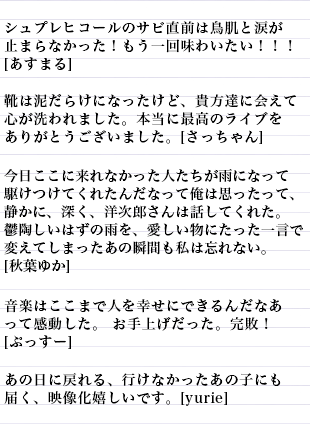 シュプレヒコールのサビ直前は鳥肌と涙が
止まらなかった！もう一回味わいたい！！！
[あすまる]
靴は泥だらけになったけど、貴方達に会えて
心が洗われました。本当に最高のライブを
ありがとうございました。[さっちゃん]
今日ここに来れなかった人たちが雨になって
駆けつけてくれたんだなって俺は思ったって、
静かに、深く、洋次郎さんは話してくれた。
鬱陶しいはずの雨を、愛しい物にたった一言で
変えてしまったあの瞬間も私は忘れない。
[秋葉ゆか]
音楽はここまで人を幸せにできるんだなあ
って感動した。 お手上げだった。完敗！
[ぷっすー]
あの日に戻れる、行けなかったあの子にも
届く、映像化嬉しいです。[yurie]